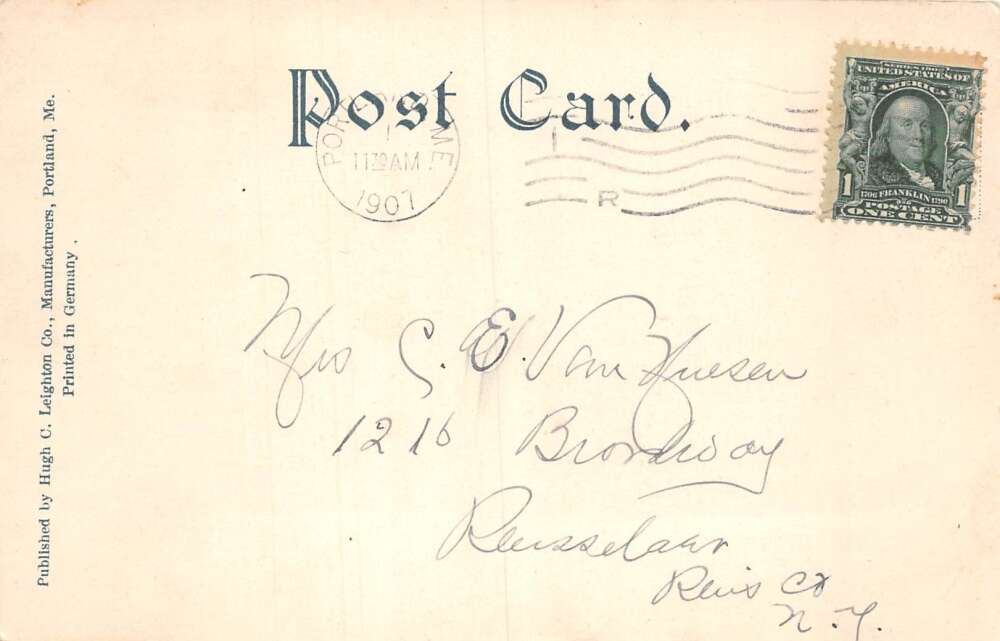 Post Card.
PORT ME.
11 30 AM
1907
R
SERIES 1902
UNITED STATES OF
AMERICA
1706 FRANKLIN 1790
1 POSTAGE 1
ONE CENT
Mrs C. E. Van
1216 Broadway
Rensselaer
Rens Co
N. Y.
Published by Hugh C. Leighton Co., Manufacturers, Portland, Me.
Printed in Germany.